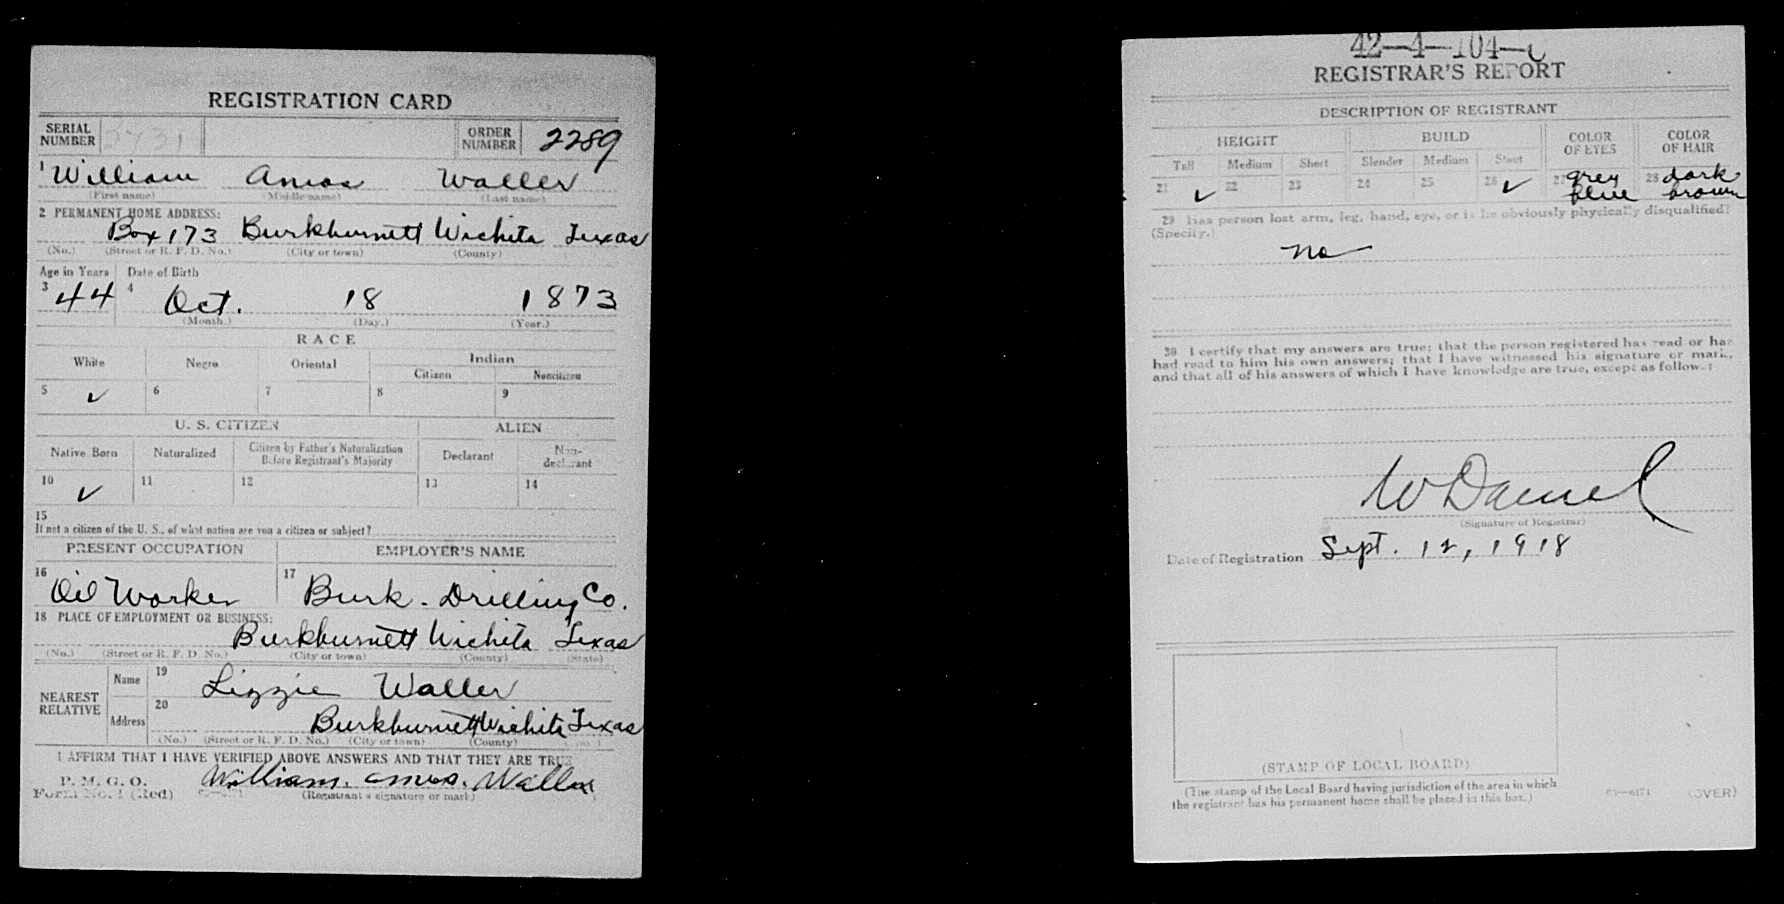 REGISTRATION CARD
SERIAL NUMBER 3731 ORDER NUMBER 2289
1 William Amos Waller
(First name) (Middle name) (Last name)
2 PERMANENT HOME ADDRESS:
Box 173 Burkburnett Wichita Texas
(No.) (Street or R. F. D. No.) (City or town) (County)
Age in Years Date of Birth
3 44 4 Oct. 18 1873
(Month.) (Day.) (Year.)
RACE
White Negro Oriental Indian
Citizen Noncitizen
5 ✓ 6 7 8 9
U. S. CITIZEN ALIEN
Native Born Naturalized Citizen by Father's Naturalization Before Registrant's Majority Declarant Non-declarant
10 ✓ 11 12 13 14
15
If not a citizen of the U. S., of what nation are you a citizen or subject?
PRESENT OCCUPATION EMPLOYER'S NAME
16 Oil Worker 17 Burk. Drilling Co.
18 PLACE OF EMPLOYMENT OR BUSINESS:
Burkburnett Wichita Texas
(No.) (Street or R. F. D. No.) (City or town) (County) (State)
NEAREST RELATIVE Name 19 Lizzie Waller
Address 20 Burkburnett Wichita Texas
(No.) (Street or R. F. D. No.) (City or town) (County)
I AFFIRM THAT I HAVE VERIFIED ABOVE ANSWERS AND THAT THEY ARE TRUE
P. M. G. O.
Form No. 1 (Red) William. amos. Waller
(Registrant's signature or mark)
42-4-104-C
REGISTRAR'S REPORT
DESCRIPTION OF REGISTRANT
HEIGHT BUILD COLOR OF EYES COLOR OF HAIR
Tall Medium Short Slender Medium Stout
21 ✓ 22 23 24 25 26 ✓ 27 grey blue 28 dark brown
29 Has person lost arm, leg, hand, eye, or is he obviously physically disqualified?
(Specify.)
no
30 I certify that my answers are true; that the person registered has read or has
had read to him his own answers; that I have witnessed his signature or mark,
and that all of his answers of which I have knowledge are true, except as follows:
W Daniel
(Signature of Registrar)
Date of Registration Sept. 12, 1918
(STAMP OF LOCAL BOARD)
(The stamp of the Local Board having jurisdiction of the area in which
the registrant has his permanent home shall be placed in this box.)
03-6171 (OVER)